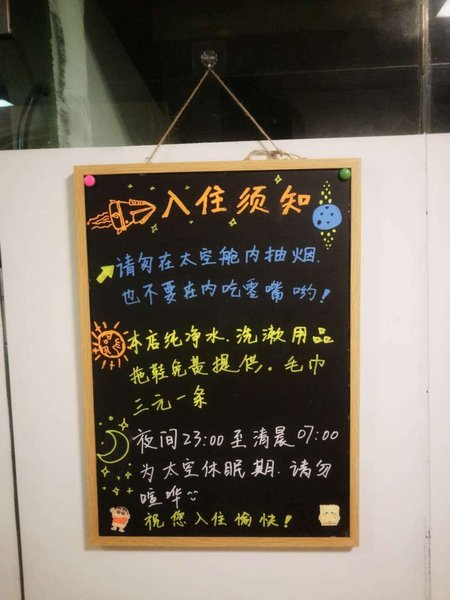 入住须知
请勿在太空舱内抽烟.
也不要在内吃零嘴哟!
本店纯净水.洗漱用品
拖鞋免费提供。毛巾
三元一条
夜间23:00至清晨07:00
为太空休眠期.请勿
喧哗
祝您入住愉快!